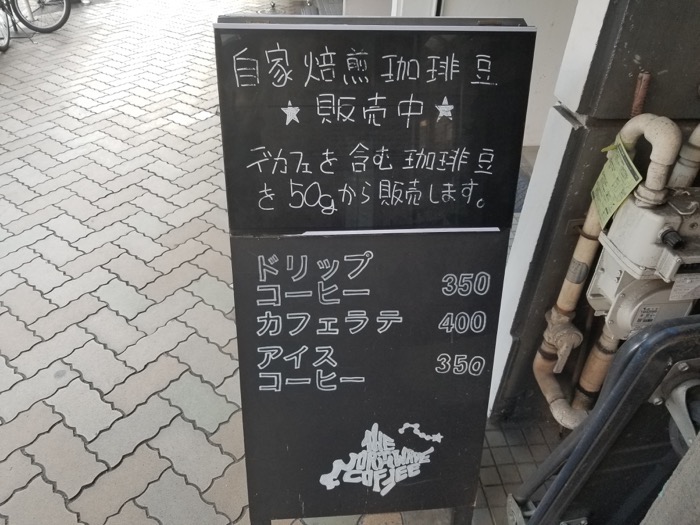 自家焙煎珈琲豆
★販売中★
デカフェを含む珈琲豆
を50gから販売します。
ドリップ
コーヒー 350
カフェラテ 400
アイス
コーヒー 350
COFFEE